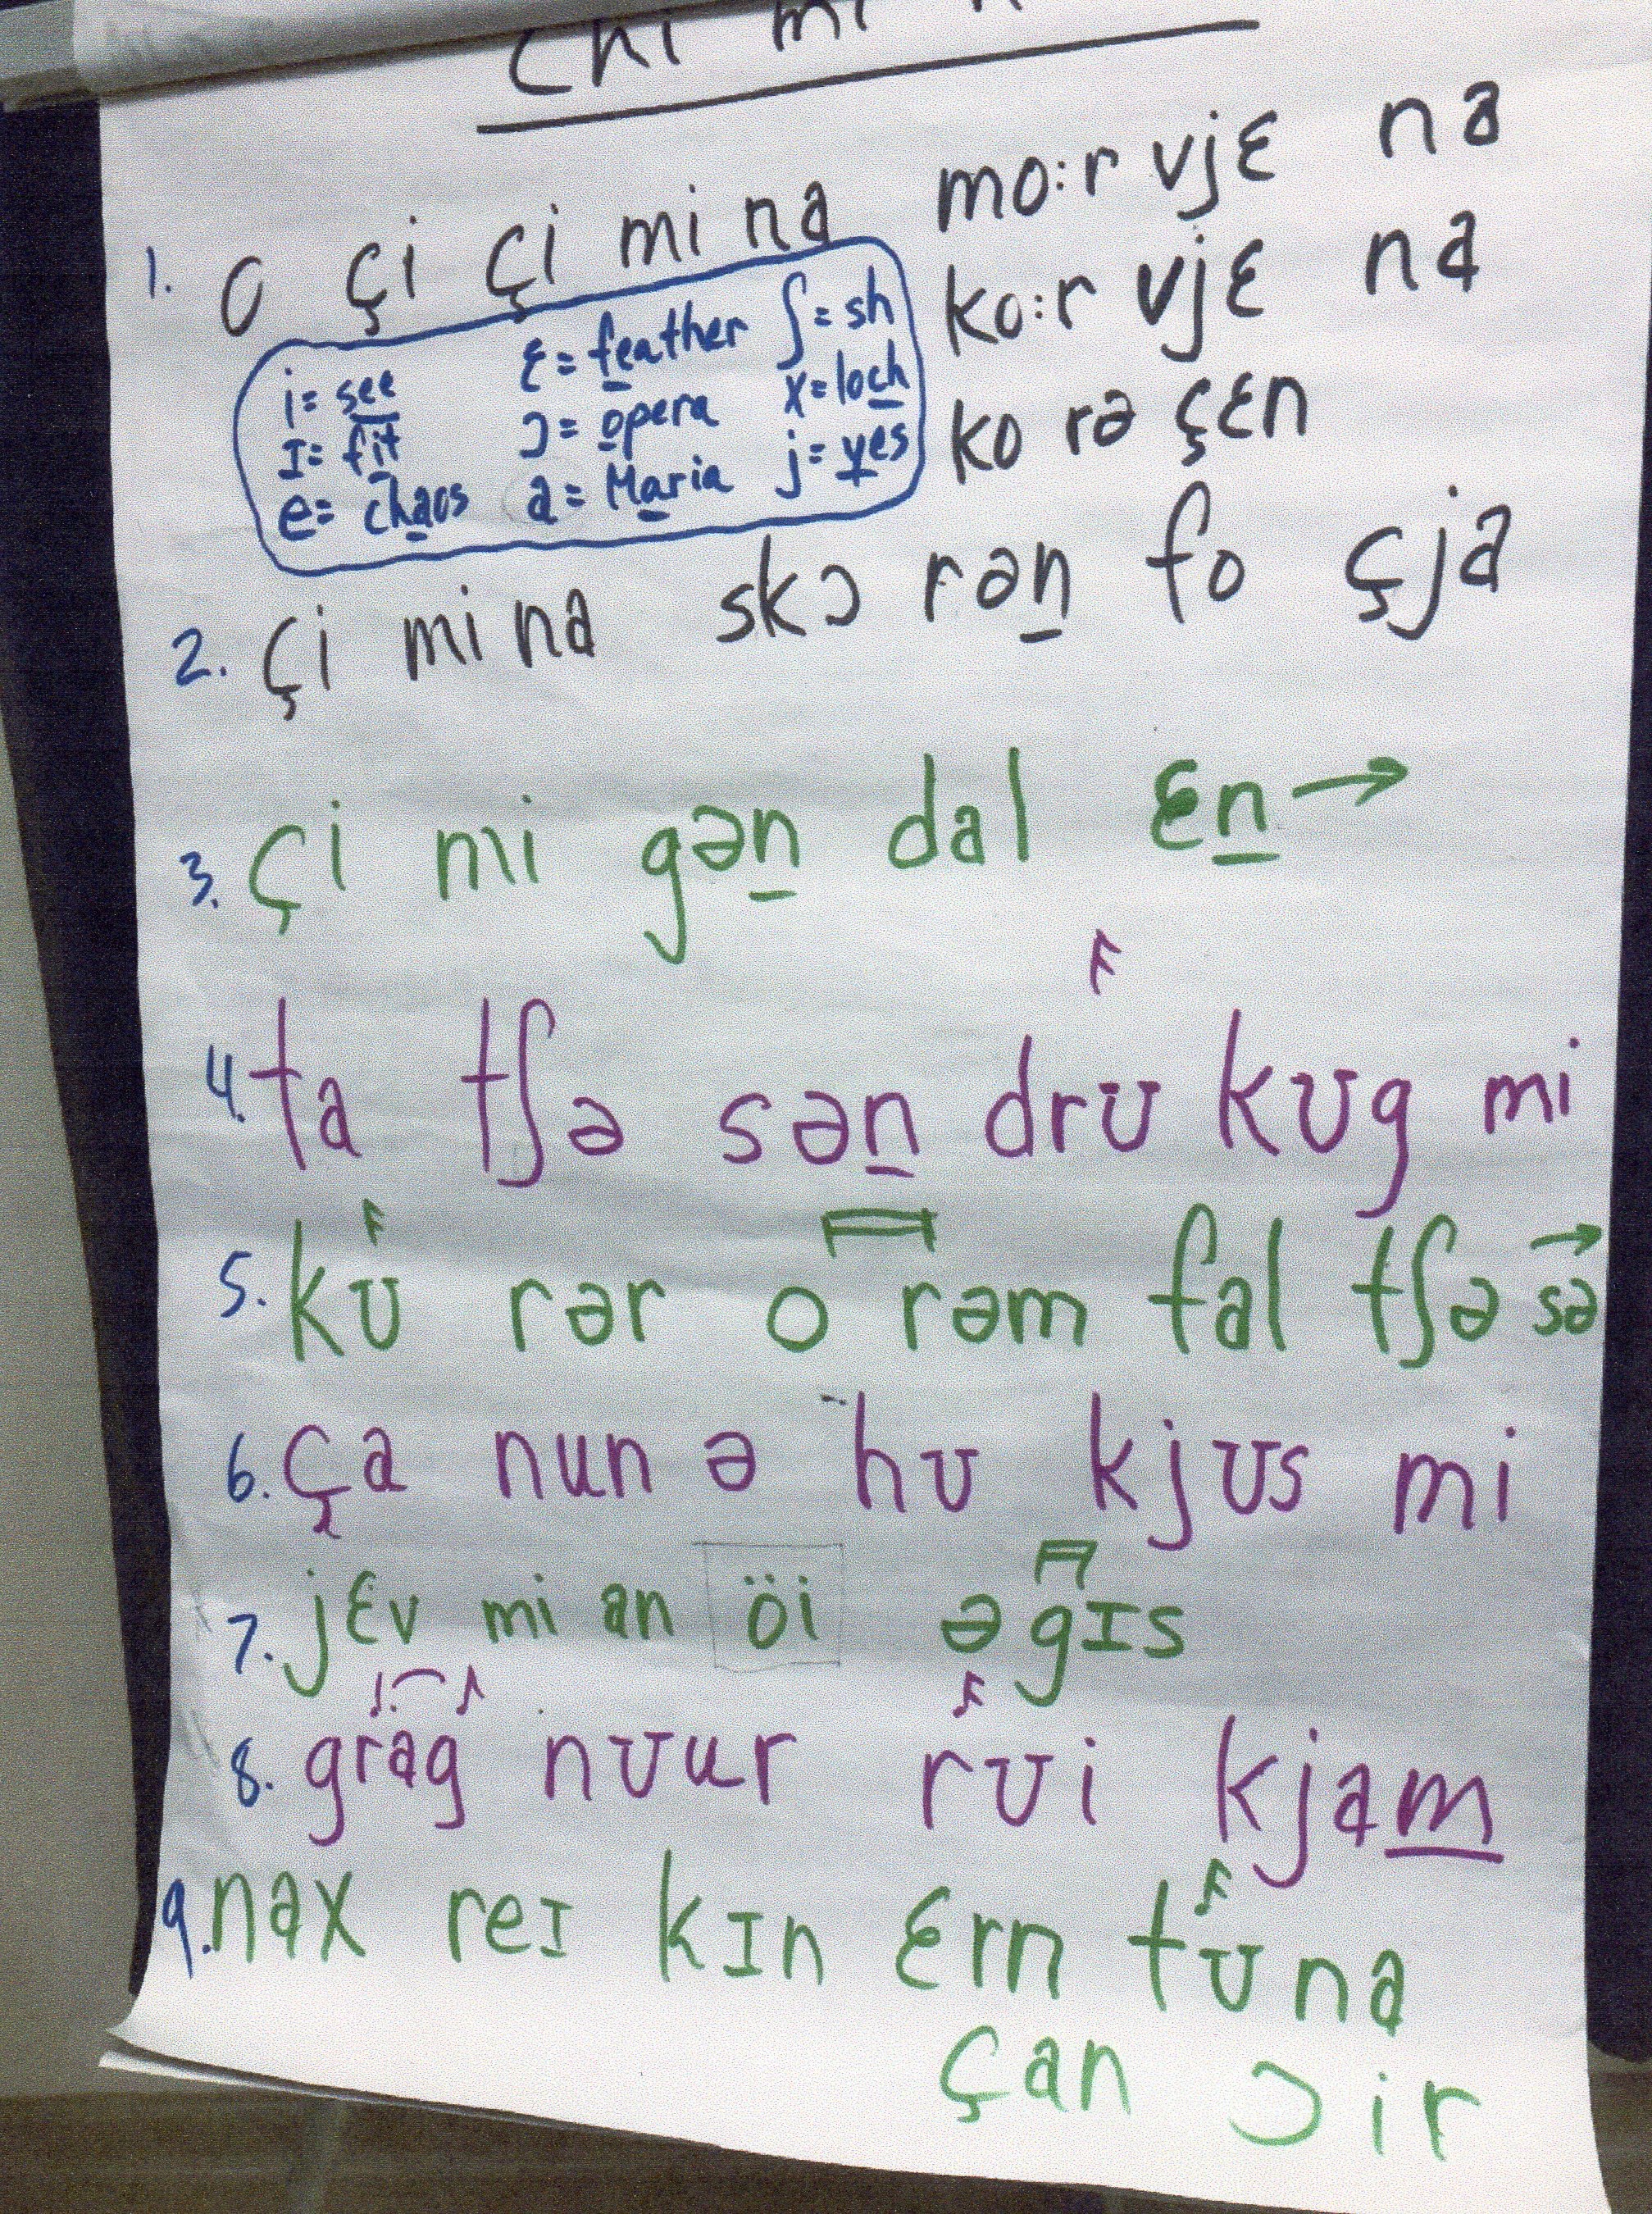 Chi mi n
1. o çi çi mi na mo:r vjɛ na
ko:r vjɛ na
ko rə çɛn
i = see
ɪ = fit
e = chaos
ɛ = feather
ɔ = opera
a = Maria
ʃ = sh
x = loch
j = yes
2. çi mi na skɔ rən fo çja
3. çi mi gən dal ɛn →
4. ta tʃə sən drʊ kʊg mi
5. kʊ rər o rəm fal tʃə sə
6. ça nun ə hʊ kjʊs mi
7. jɛv mi an öi ə gɪs
8. grag nʊur rʊi kjam
9. nax reɪ kɪn ɛrn tʊna
çan ɔir